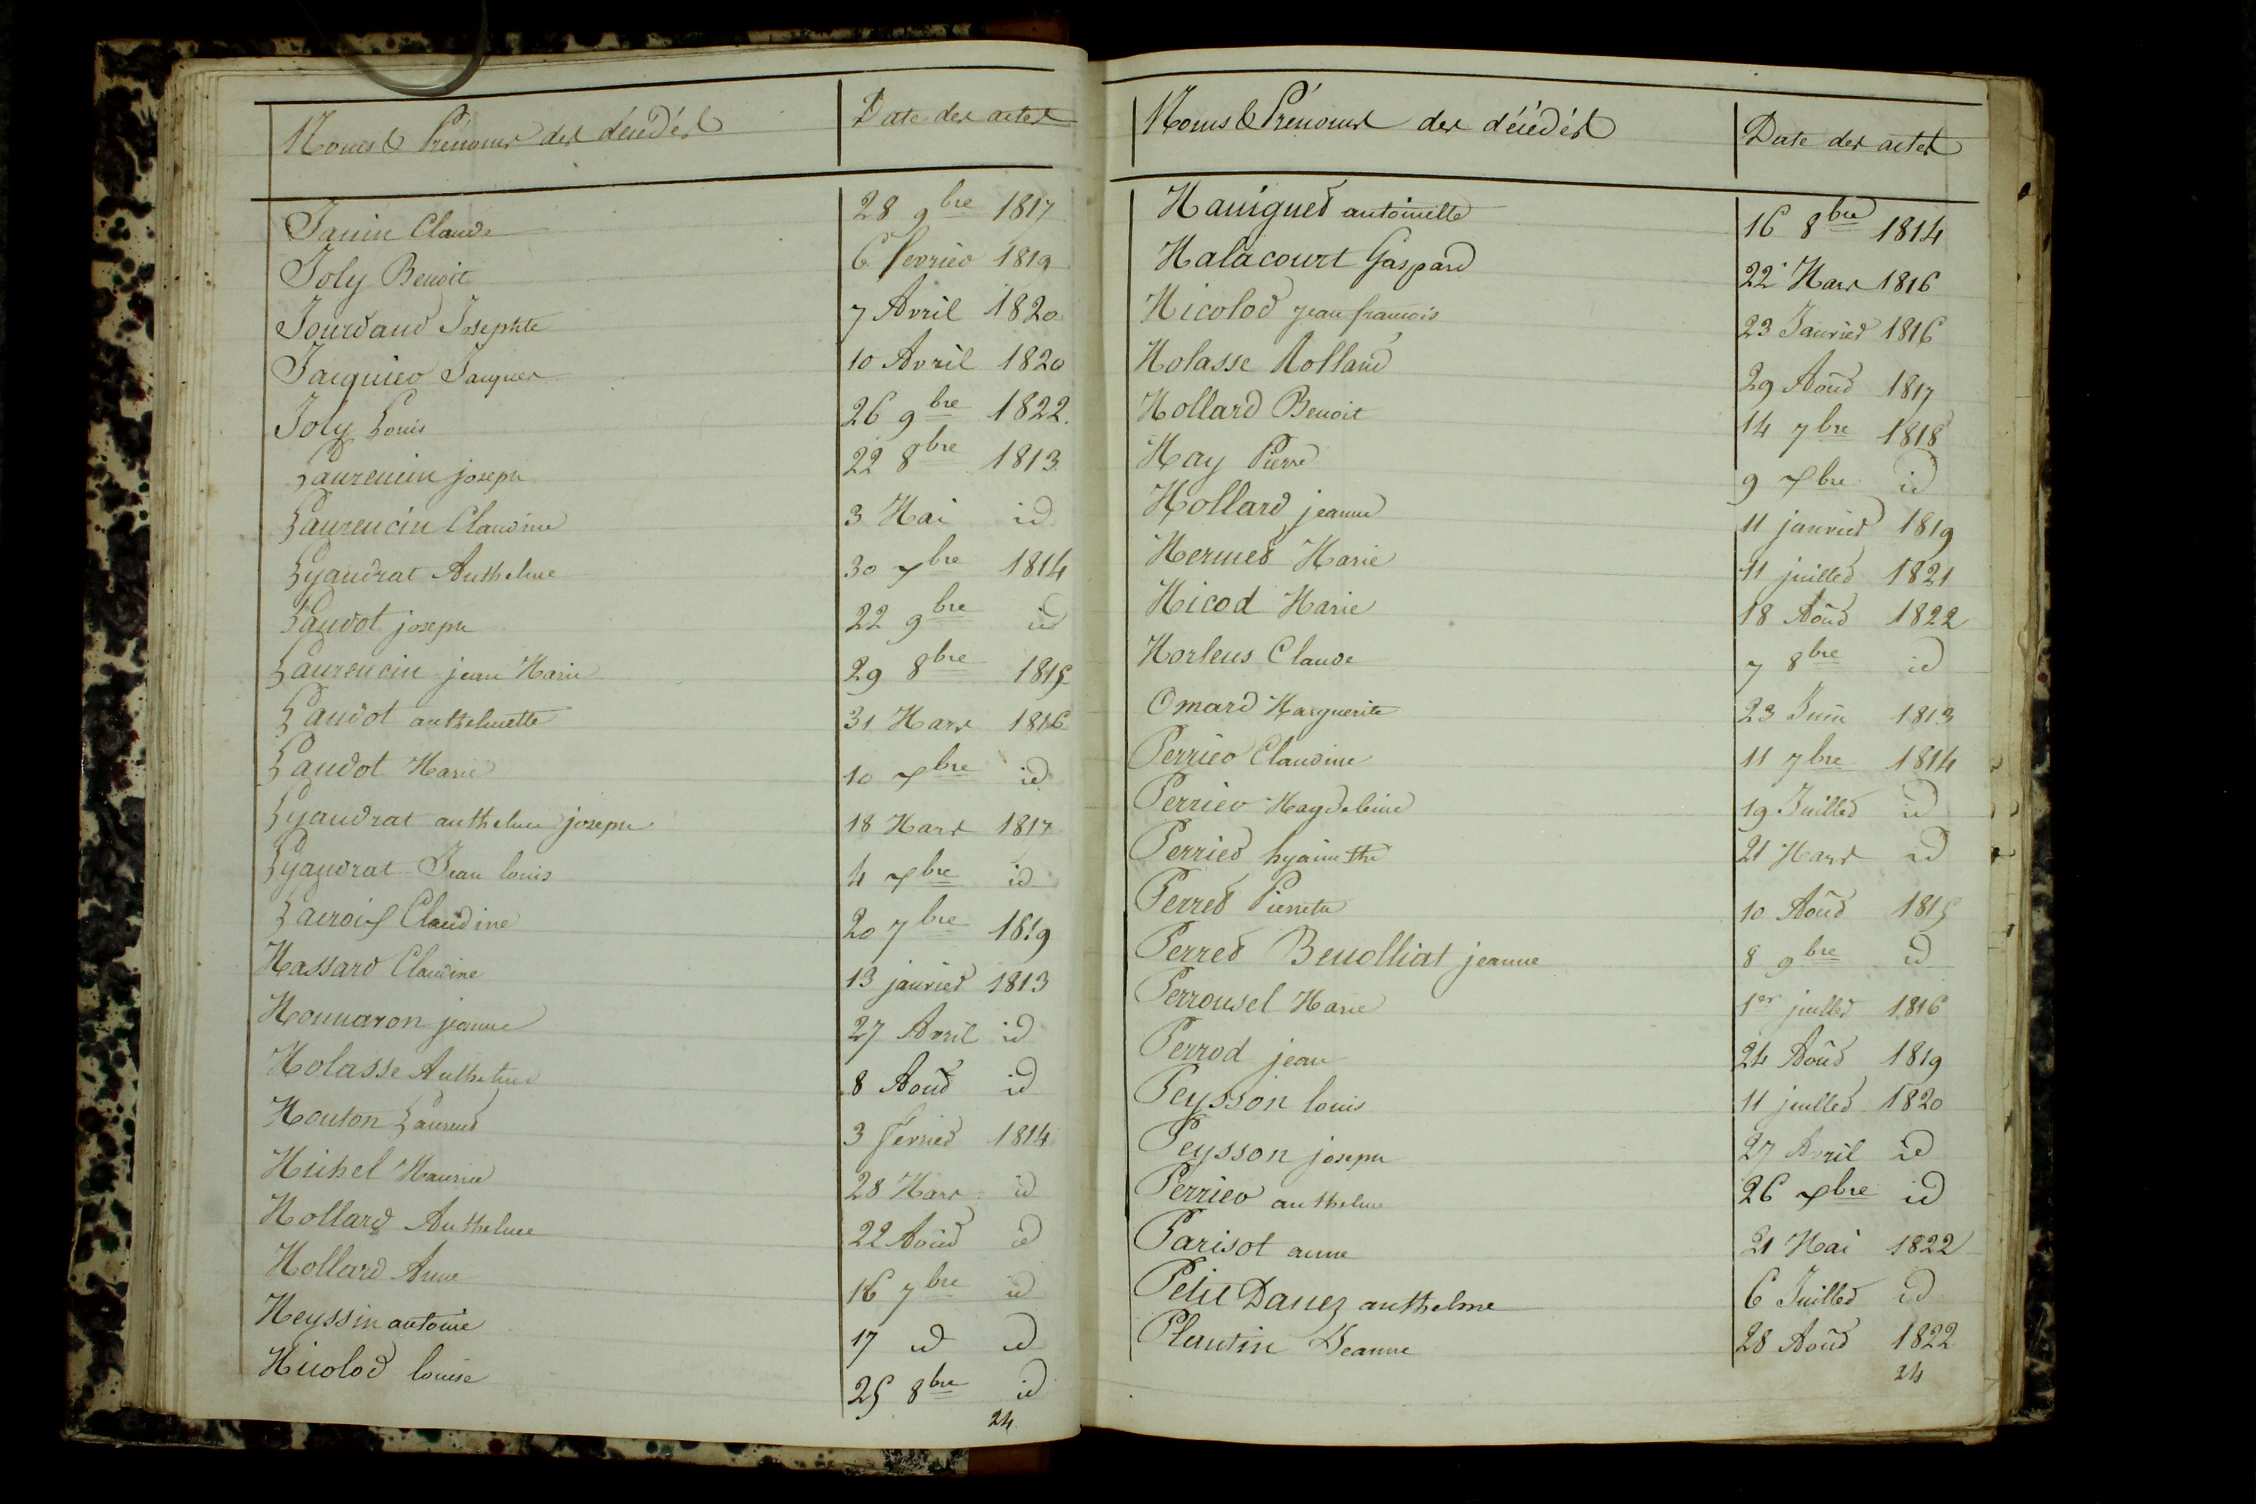 Noms & Prénoms des décédés Date des actes
Janin Claude 28 9bre 1817
Joly Benoit 6 fevrier 1819
Jourdand Josephte 7 Avril 1820
Jacquier Jacques 10 Avril 1820
Joly Louis 26 9bre 1822.
Laurencin joseph 22 8bre 1813
Laurencin Claudine 3 Mai id
Lyaudrat Anthelme 30 Xbre 1814
Laudot joseph 22 9bre id
Laurencin jean Marie 29 8bre 1815
Laudot anthelmette 31 Mars 1816
Laudot Marie 10 Xbre id
Lyaudrat anthelme joseph 18 Mars 1817
Lyaudrat Jean louis 4 Xbre id
Claudine 20 7bre 1819
Massard Claudine 13 janvier 1813
Monnaron jeanne 27 Avril id
Molasse Anthelme 8 Août id
Mouton Laurent 3 fevrier 1814
Michel Maurice 28 Mars id
Mollard Anthelme 22 Août id
Mollard Anne 16 7bre id
Meyssin antoine 17 id id
Micolod louise 25 8bre id
24
Noms & Prénoms des décédés Date des actes
antoinette 16 8bre 1814
Malacourt Gaspard 22 Mars 1816
Micolod jean françois 23 Janvier 1816
Molasse Rolland 29 Août 1817
Mollard Benoit 14 7bre 1818
May Pierre 9 Xbre id
Mollard jeanne 11 janvier 1819
Mermet Marie 11 juillet 1821
Nicod Marie 18 Août 1822
Morleus Claude 7 8bre id
Omard Marguerite 23 Juin 1813
Perrier Claudine 11 7bre 1814
Perrier Magdeleine 19 Juillet id
Perrier hyacinthe 21 Mars id
Perret Pierrette 10 Août 1815
Perret Benolliat jeanne 8 9bre id
Perrousel Marie 1er juillet 1816
Perrod jean 24 Août 1819
Peysson louis 11 juillet 1820
Peysson joseph 27 Avril id
Perrier anthelme 26 Xbre id
Parisot anne 21 Mai 1822
Petit Danez anthelme 6 Juillet id
Plantin Jeanne 28 Août 1822
24